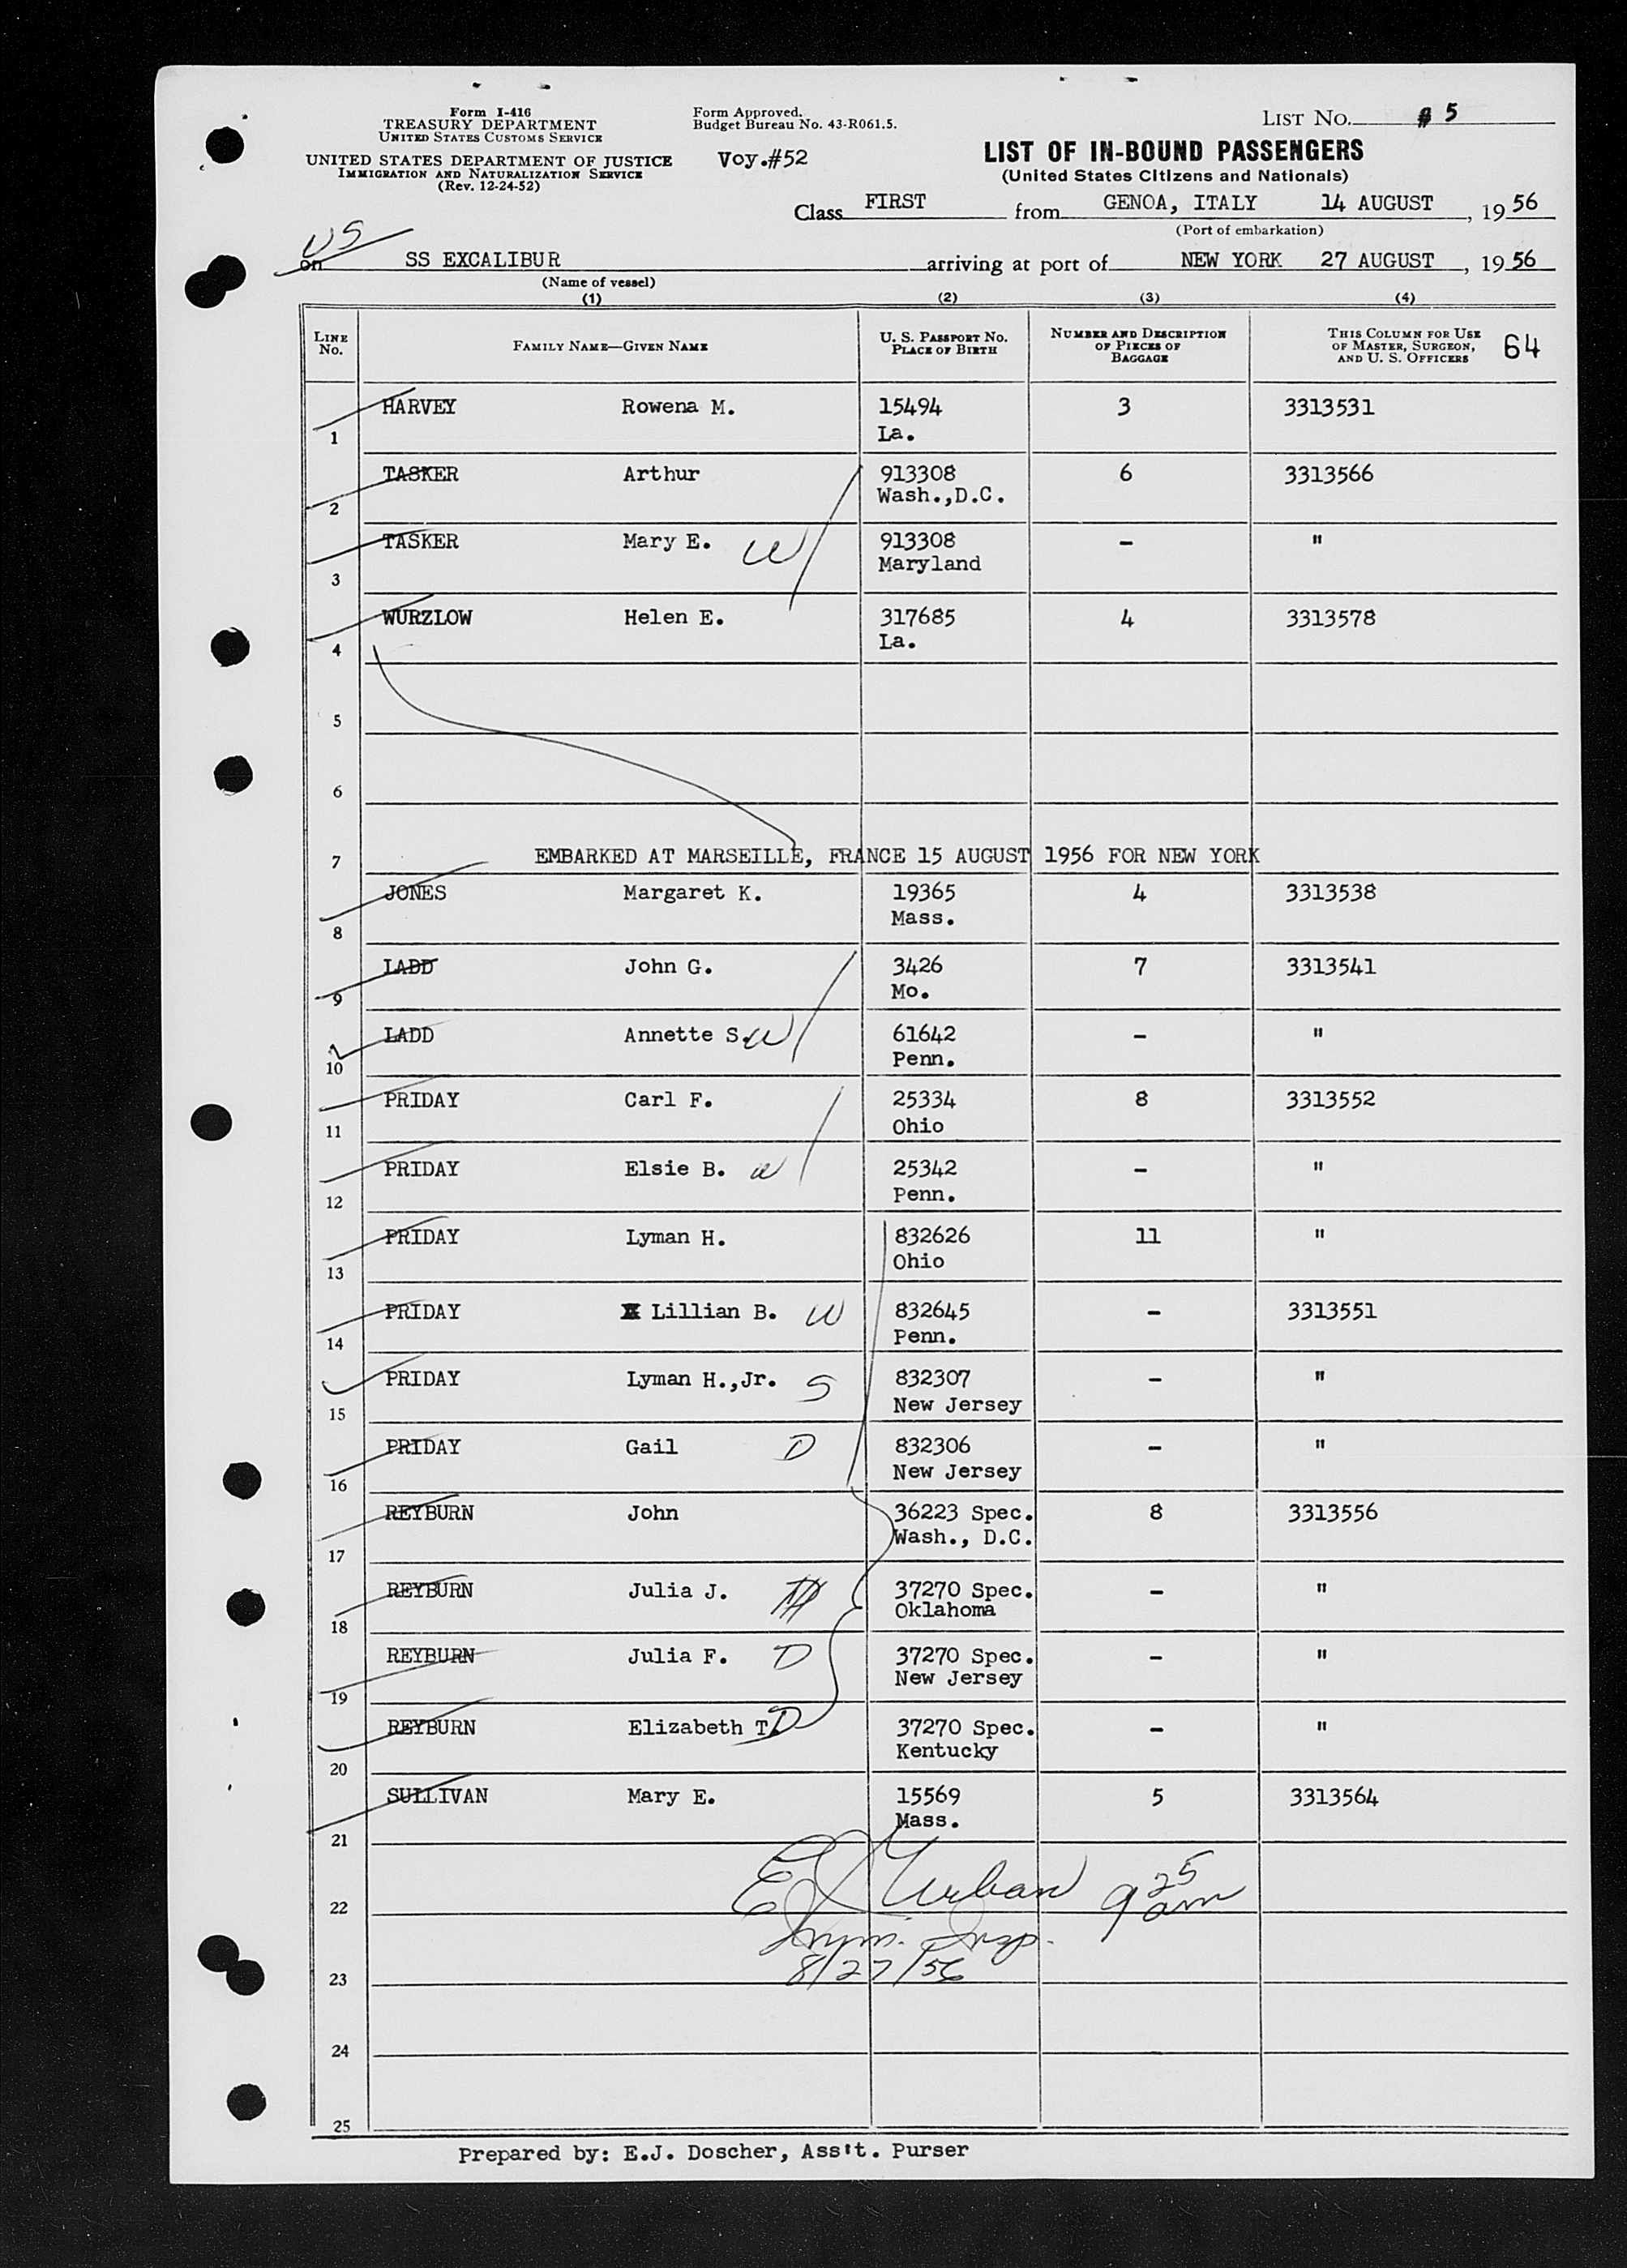 Form I-416
TREASURY DEPARTMENT
UNITED STATES CUSTOMS SERVICE
UNITED STATES DEPARTMENT OF JUSTICE
IMMIGRATION AND NATURALIZATION SERVICE
(Rev. 12-24-52)
Form Approved.
Budget Bureau No. 43-R061.5.
Voy.#52
LIST NO. # 5
LIST OF IN-BOUND PASSENGERS
(United States Citizens and Nationals)
Class FIRST from GENOA, ITALY 14 AUGUST, 1956
(Port of embarkation)
US
on SS EXCALIBUR arriving at port of NEW YORK 27 AUGUST, 1956
(Name of vessel)
(1) (2) (3) (4)
LINE NO. FAMILY NAME—GIVEN NAME U. S. PASSPORT NO. PLACE OF BIRTH NUMBER AND DESCRIPTION OF PIECES OF BAGGAGE THIS COLUMN FOR USE OF MASTER, SURGEON, AND U. S. OFFICERS 64
1 HARVEY Rowena M. 15494 3 3313531
La.
2 TASKER Arthur 913308 6 3313566
Wash.,D.C.
3 TASKER Mary E. W 913308 - "
Maryland
4 WURZLOW Helen E. 317685 4 3313578
La.
5
6
7 EMBARKED AT MARSEILLE, FRANCE 15 AUGUST 1956 FOR NEW YORK
8 JONES Margaret K. 19365 4 3313538
Mass.
9 LADD John G. 3426 7 3313541
Mo.
10 LADD Annette S. W 61642 - "
Penn.
11 PRIDAY Carl F. 25334 8 3313552
Ohio
12 PRIDAY Elsie B. W 25342 - "
Penn.
13 PRIDAY Lyman H. 832626 11 "
Ohio
14 PRIDAY Lillian B. W 832645 - 3313551
Penn.
15 PRIDAY Lyman H.,Jr. S 832307 - "
New Jersey
16 PRIDAY Gail D 832306 - "
New Jersey
17 REYBURN John 36223 Spec. 8 3313556
Wash., D.C.
18 REYBURN Julia J. 37270 Spec. - "
Oklahoma
19 REYBURN Julia F. D 37270 Spec. - "
New Jersey
20 REYBURN Elizabeth T. D 37270 Spec. - "
Kentucky
21 SULLIVAN Mary E. 15569 5 3313564
Mass.
22 E J Urban 9 25 am
Imm. Insp.
23 8/27/56
24
25
Prepared by: E.J. Doscher, Ass't. Purser